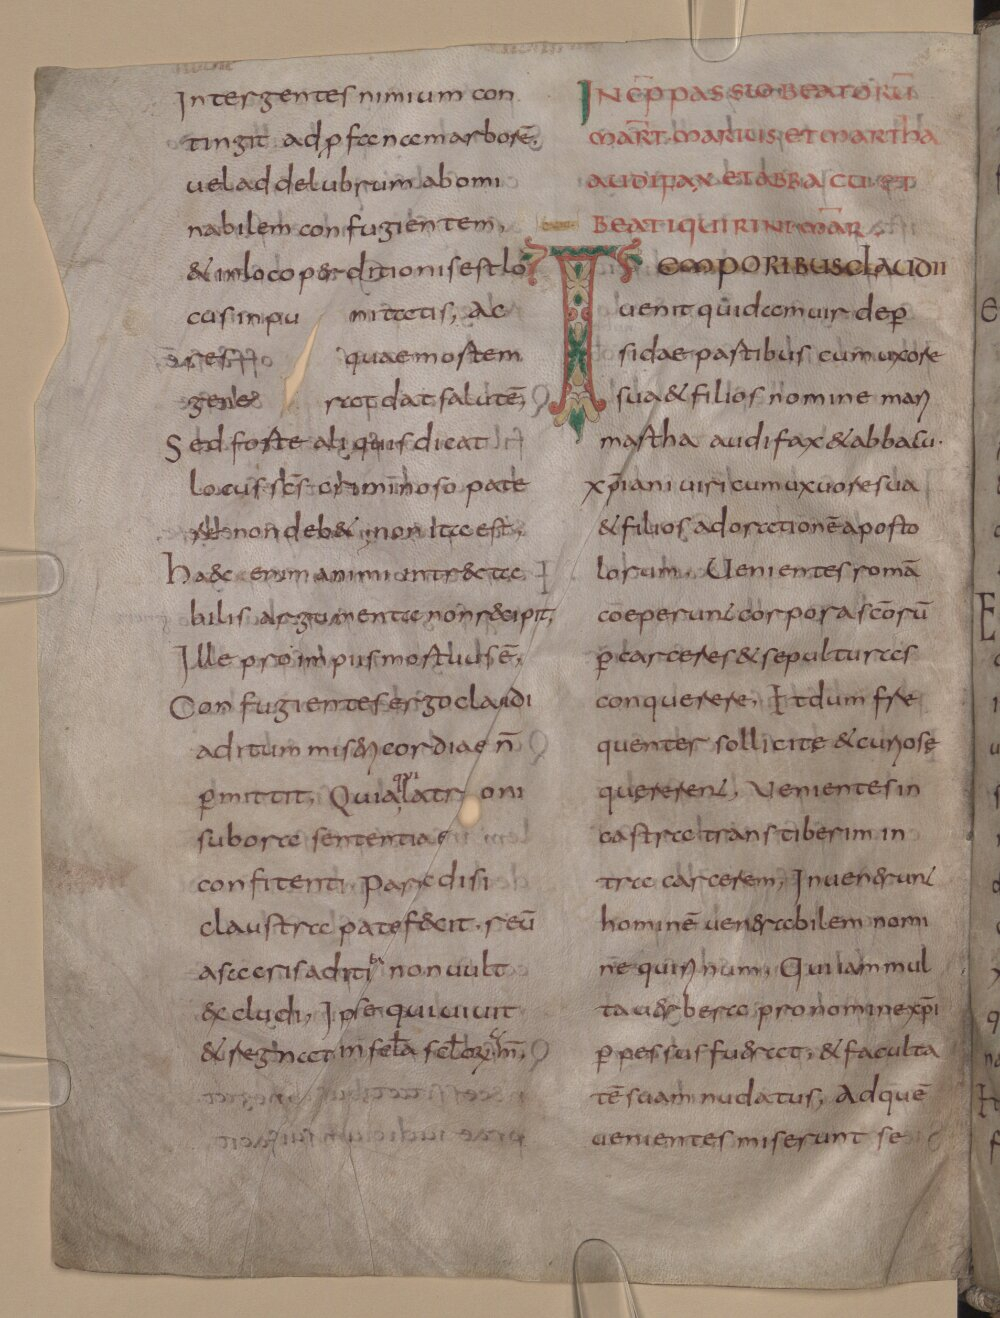 Intergentes nimium con
tingit ad ꝑfanam arborē,
uel ad delubrum abomi
nabilem confugientem,
& in loco perditionis est lo
cus inpunitatis, Ac
quae mortem
gene rat dat salutē,
Sed forte aliquis dicat
locus scs criminoso pate
re non deb&, non ita est,
haec enim animi intracta
bilis argumenta non recipit,
Ille pro impiis mortuus ē,
Confugientes ergo claudi
aditum misericordiae n̄
ꝑmittit, Quia qui latroni
sub ora sententiae
confitenti paradisi
claustra patefecit, reū
a sacris aditibus non uult
excludi, Ipse qui uiuit
& regnat in secla seclorum, am̄,
INCP̄ PASSIO BEATORŪ
MART̄ MARIUS ET MARTHA
AUDIFAX ET ABBACU ET
BEATI QUIRINI MĀR
TEMPORIBUS CLAUDII
uenit quidam uir de ꝑ
sidae partibus cum uxore
sua & filios nomine mari
martha audifax & abbacu.
xp̄iani uiri cum uxore sua
& filios ad orationē aposto
lorum, Uenientes romā
coeperunt corpora scōrū
ꝑ carceres & sepulturas
conquerere, Et dum fre
quentes sollicite & curiose
quererent, Uenientes in
castra transtiberim in
tra carcerem, Inuenerunt
hominē uenerabilem nomi
ne quirinum, Qui iam mul
ta uerbera pro nomine xp̄i
ꝑpessus fuerat, & faculta
tē suam nudatus, Ad quē
uenientes miserunt se